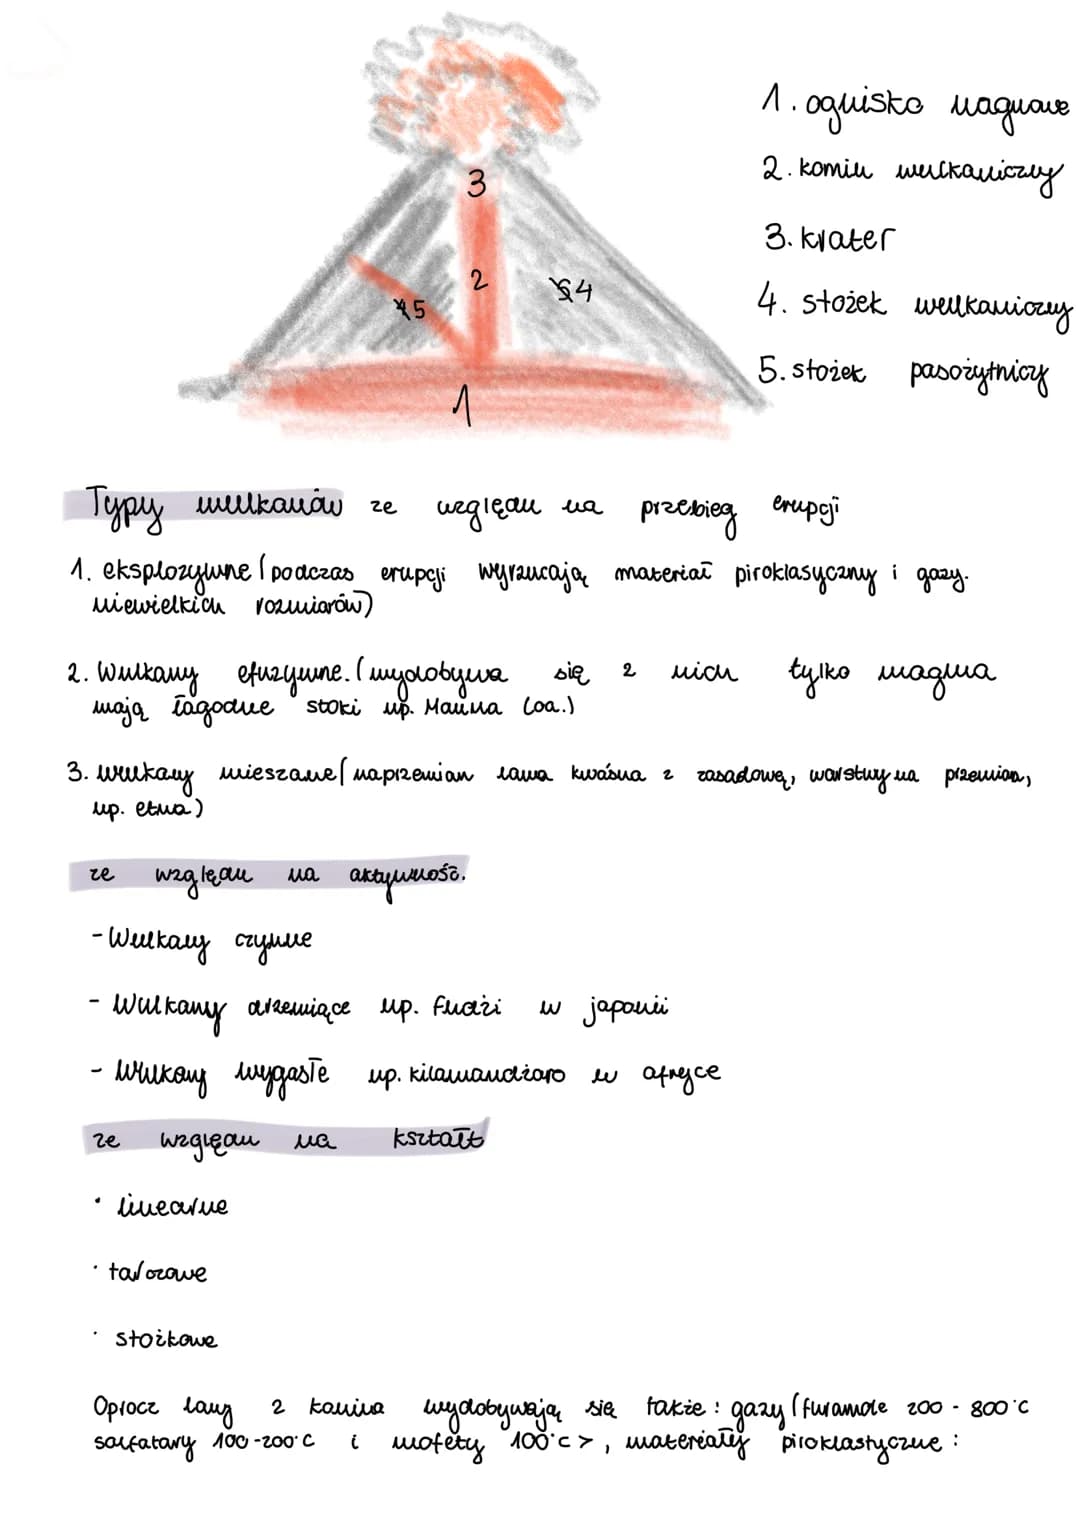 3
2
5
4
1
1. ognisko magmowe
2. komin wulkaniczny
3. krater
4. stożek wulkaniczny
5. stożek pasożytniczy
Typy wulkanów ze względu na przebieg erupcji
1. eksplozywne (podczas erupcji wyrzucają materiał piroklasyczny i gazy.
niewielkich rozmiarów)
2. Wulkany efuzywne. (wydobywa się z nich tylko magma
mają łagodne stoki np. Mauna Loa.)
3. wulkany mieszane (naprzemian lawa kwaśna z zasadową, warstwy na przemian,
np. etna)
ze względu na aktywność.
- Wulkany czynne
- Wulkany drzemiące np. fudżi w japonii
- Wulkany wygasłe np. kilamandżaro w afryce
ze względu na kształt
• linearne
• tarczowe
• stożkowe
Oprocz lawy z komina wydobywają się także : gazy (furamole 200 - 800°C
solfatary 100-200°C i mofety 100°C >, materiały piroklastyczne :